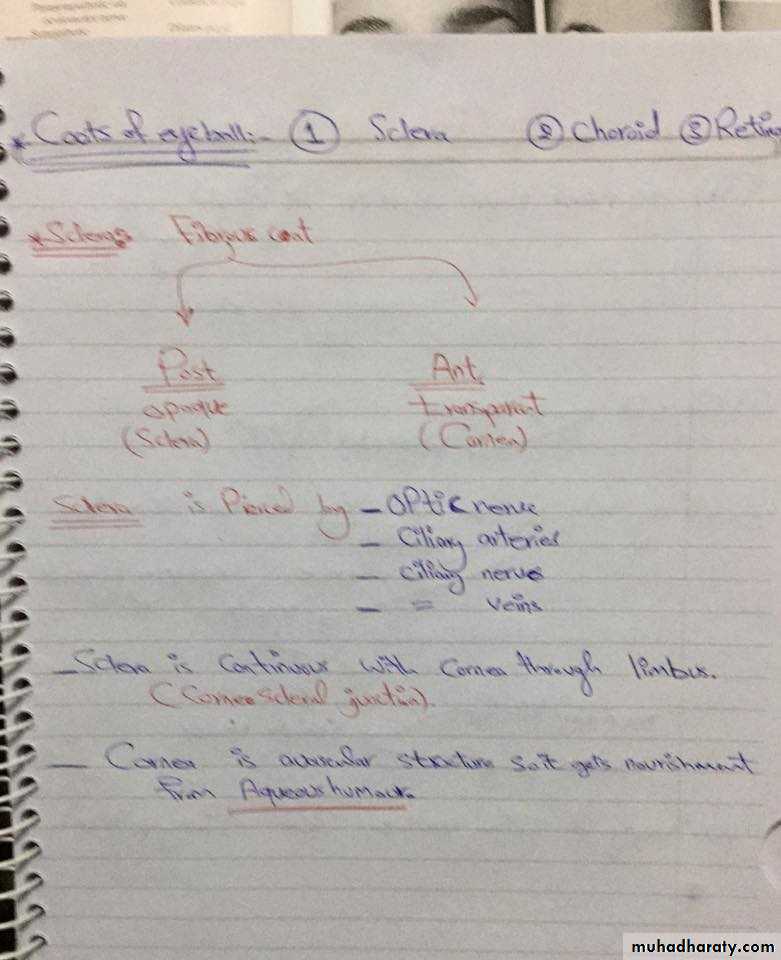 * Coats of eyeball:- ① Sclera ② Choroid ③ Retin
* Sclera: Fibrous coat
Post Ant.
opaque transparent
(Sclera) (Cornea)
Sclera is Pierced by - OPtic nerve
- Ciliary arteries
- Ciliary nerves
- = veins
- Sclera is continuous with Cornea through limbus.
(Corneoscleral junction).
- Cornea is avascular structure so it gets nourishment
from Aqueous humour.
muhadharaty.com